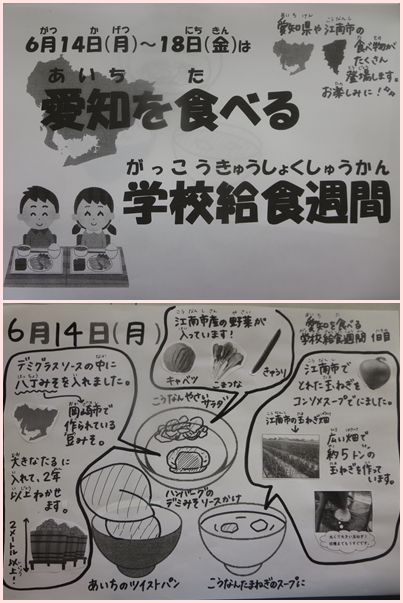 6月14日(月)～18日(金)は
愛知を食べる
学校給食週間
愛知県や江南市の
食べ物が
たくさん
登場します。
お楽しみに！
6月14日(月)
愛知を食べる
学校給食週間 1日目
江南市産の野菜が
入っています！
キャベツ
こまつな
きゅうり
デミグラスソースの中に
八丁みそを入れました。
岡崎市で
作られている
豆みそ。
大きなたるに
入れて、2年
以上ねかせ
ます。
2メートル以上！
こうなんやさい
サラダ
ハンバーグの
デミみそソースかけ
あいちのツイストパン
こうなんたまねぎのスープに
江南市で
とれた玉ねぎを
コンソメスープでにました。
江南市の玉ねぎ畑
広い畑で
約5トンの
玉ねぎを作って
います。